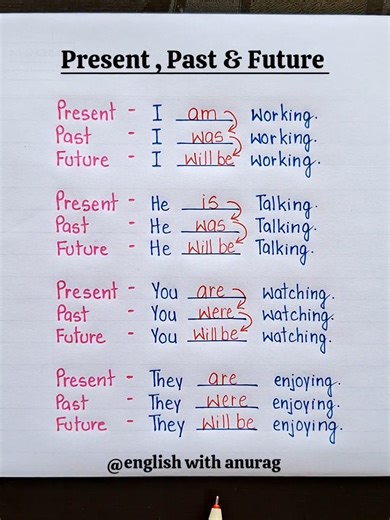 Present , Past & Future
Present - I am working.
Past - I was working.
Future - I will be working.
Present - He is Talking.
Past - He was Talking.
Future - He will be Talking.
Present - You are watching.
Past - You were watching.
Future - You will be watching.
Present - They are enjoying.
Past - They were enjoying.
Future - They will be enjoying.
@english with anurag